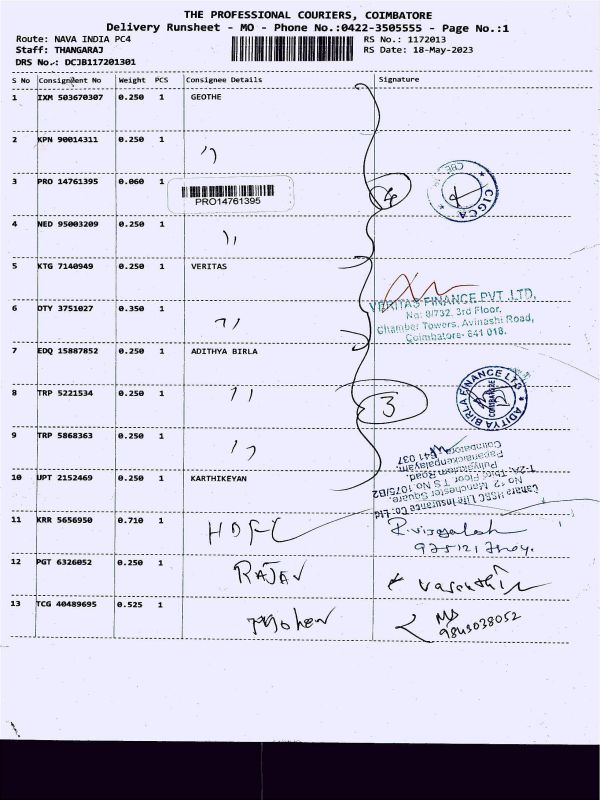 THE PROFESSIONAL COURIERS, COIMBATORE
Delivery Runsheet - MO - Phone No.:0422-3505555 - Page No.:1
Route: NAVA INDIA PC4
RS No.: 1172013
Staff: THANGARAJ
RS Date: 18-May-2023
DRS No.: DCJB117201301
S No Consignment No Weight PCS Consignee Details Signature
1 IXM 503670307 0.250 1 GEOTHE
2 KPN 90014311 0.250 1 ,,
3 PRO 14761395 0.060 1 PRO14761395 4 CIGCA
4 NED 95003209 0.250 1 ,,
5 KTG 7140949 0.250 1 VERITAS
VERITAS FINANCE PVT. LTD.
No: 8/732, 3rd Floor,
Chamber Towers, Avinashi Road,
Coimbatore- 641 018.
6 OTY 3751027 0.350 1 ,,
7 EDQ 15887852 0.250 1 ADITHYA BIRLA
8 TRP 5221534 0.250 1 ,, 3
ADITYA BIRLA FINANCE LTD
COIMBATORE
9 TRP 5868363 0.250 1 ,,
10 UPT 2152469 0.250 1 KARTHIKEYAN
Canara HSBC Life Insurance Co Ltd
No 12, Manchester Square,
1-2A, Third Floor T S No 1075/B2
Puliyakulam Road,
Pappanaickenpalayam,
Coimbatore 641 037
11 KRR 5656950 0.710 1 HDFC
12 PGT 6326052 0.250 1 RAJAV
13 TCG 40489695 0.525 1 Mohan
9843038052